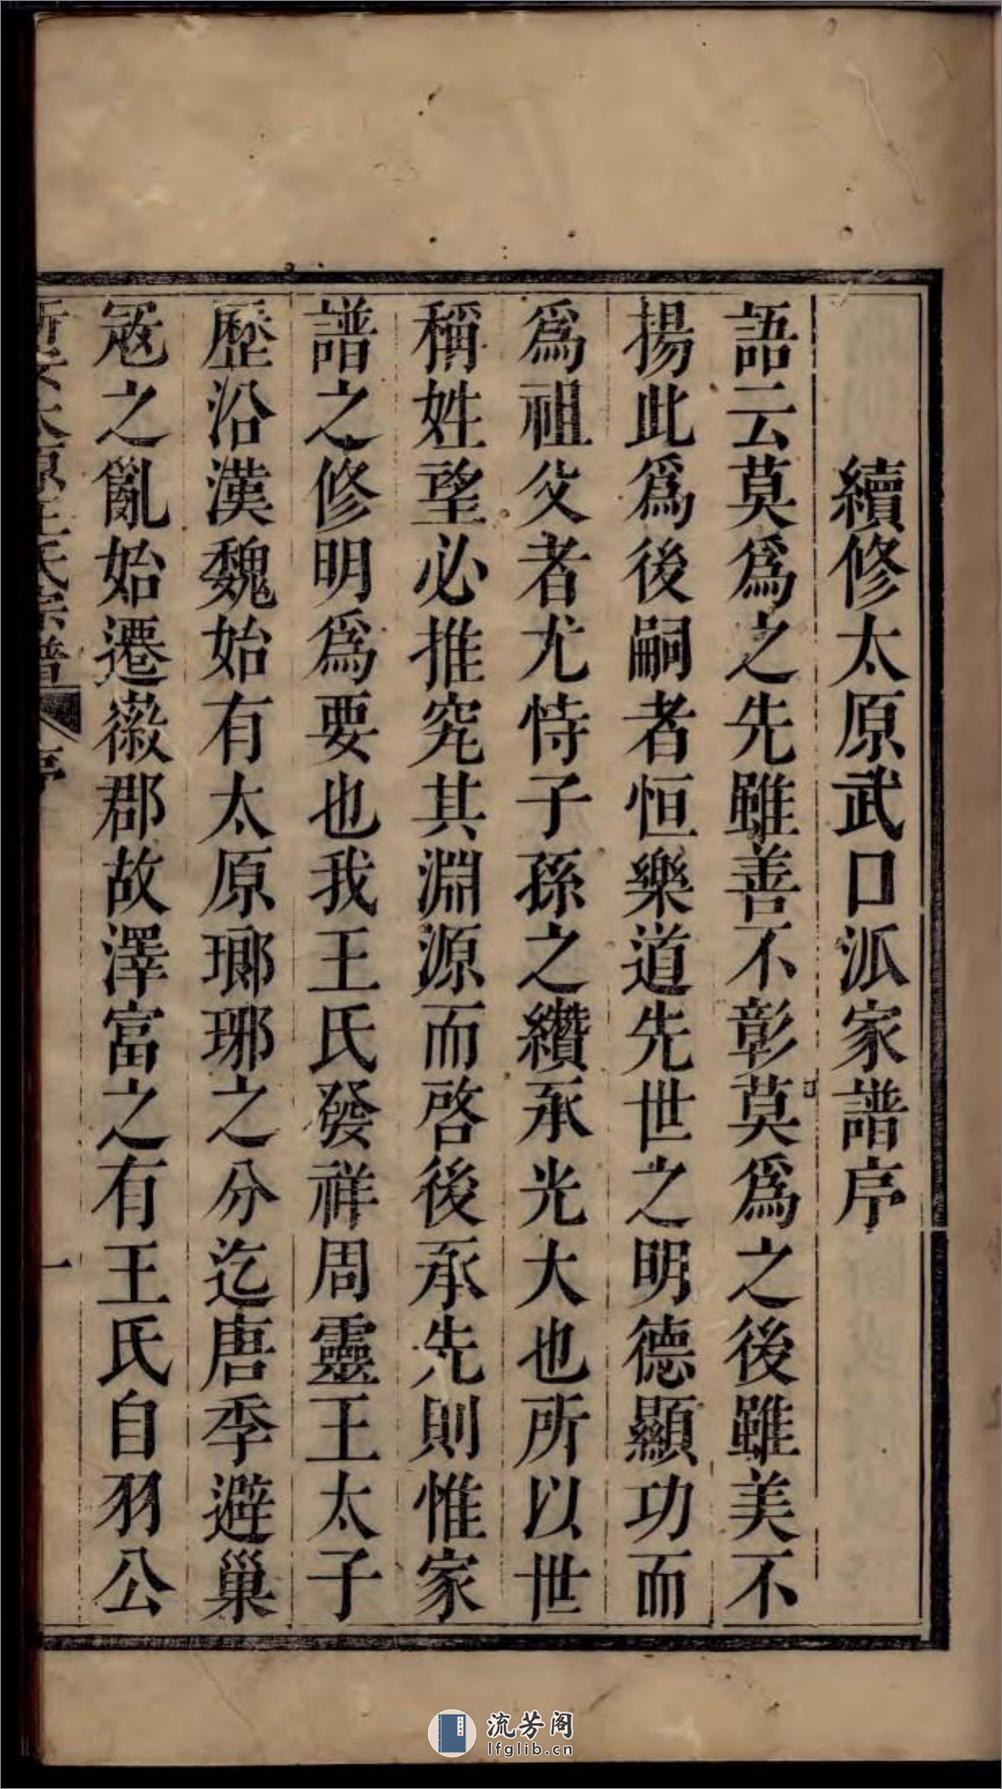 續修太原武口派家譜序
語云莫爲之先雖善不彰莫爲之後雖美不
揚此爲後嗣者恒樂道先世之明德顯功而
爲祖父者尤恃子孫之纘承光大也所以世
稱姓望必推究其淵源而啓後承先則惟家
譜之修明爲要也我王氏發祥周靈王太子
歷沿漢魏始有太原瑯琊之分迄唐季避巢
寇之亂始遷徽郡故澤富之有王氏自羽公
新安太原王氏宗譜 序 一
流芳阁
lfglib.cn